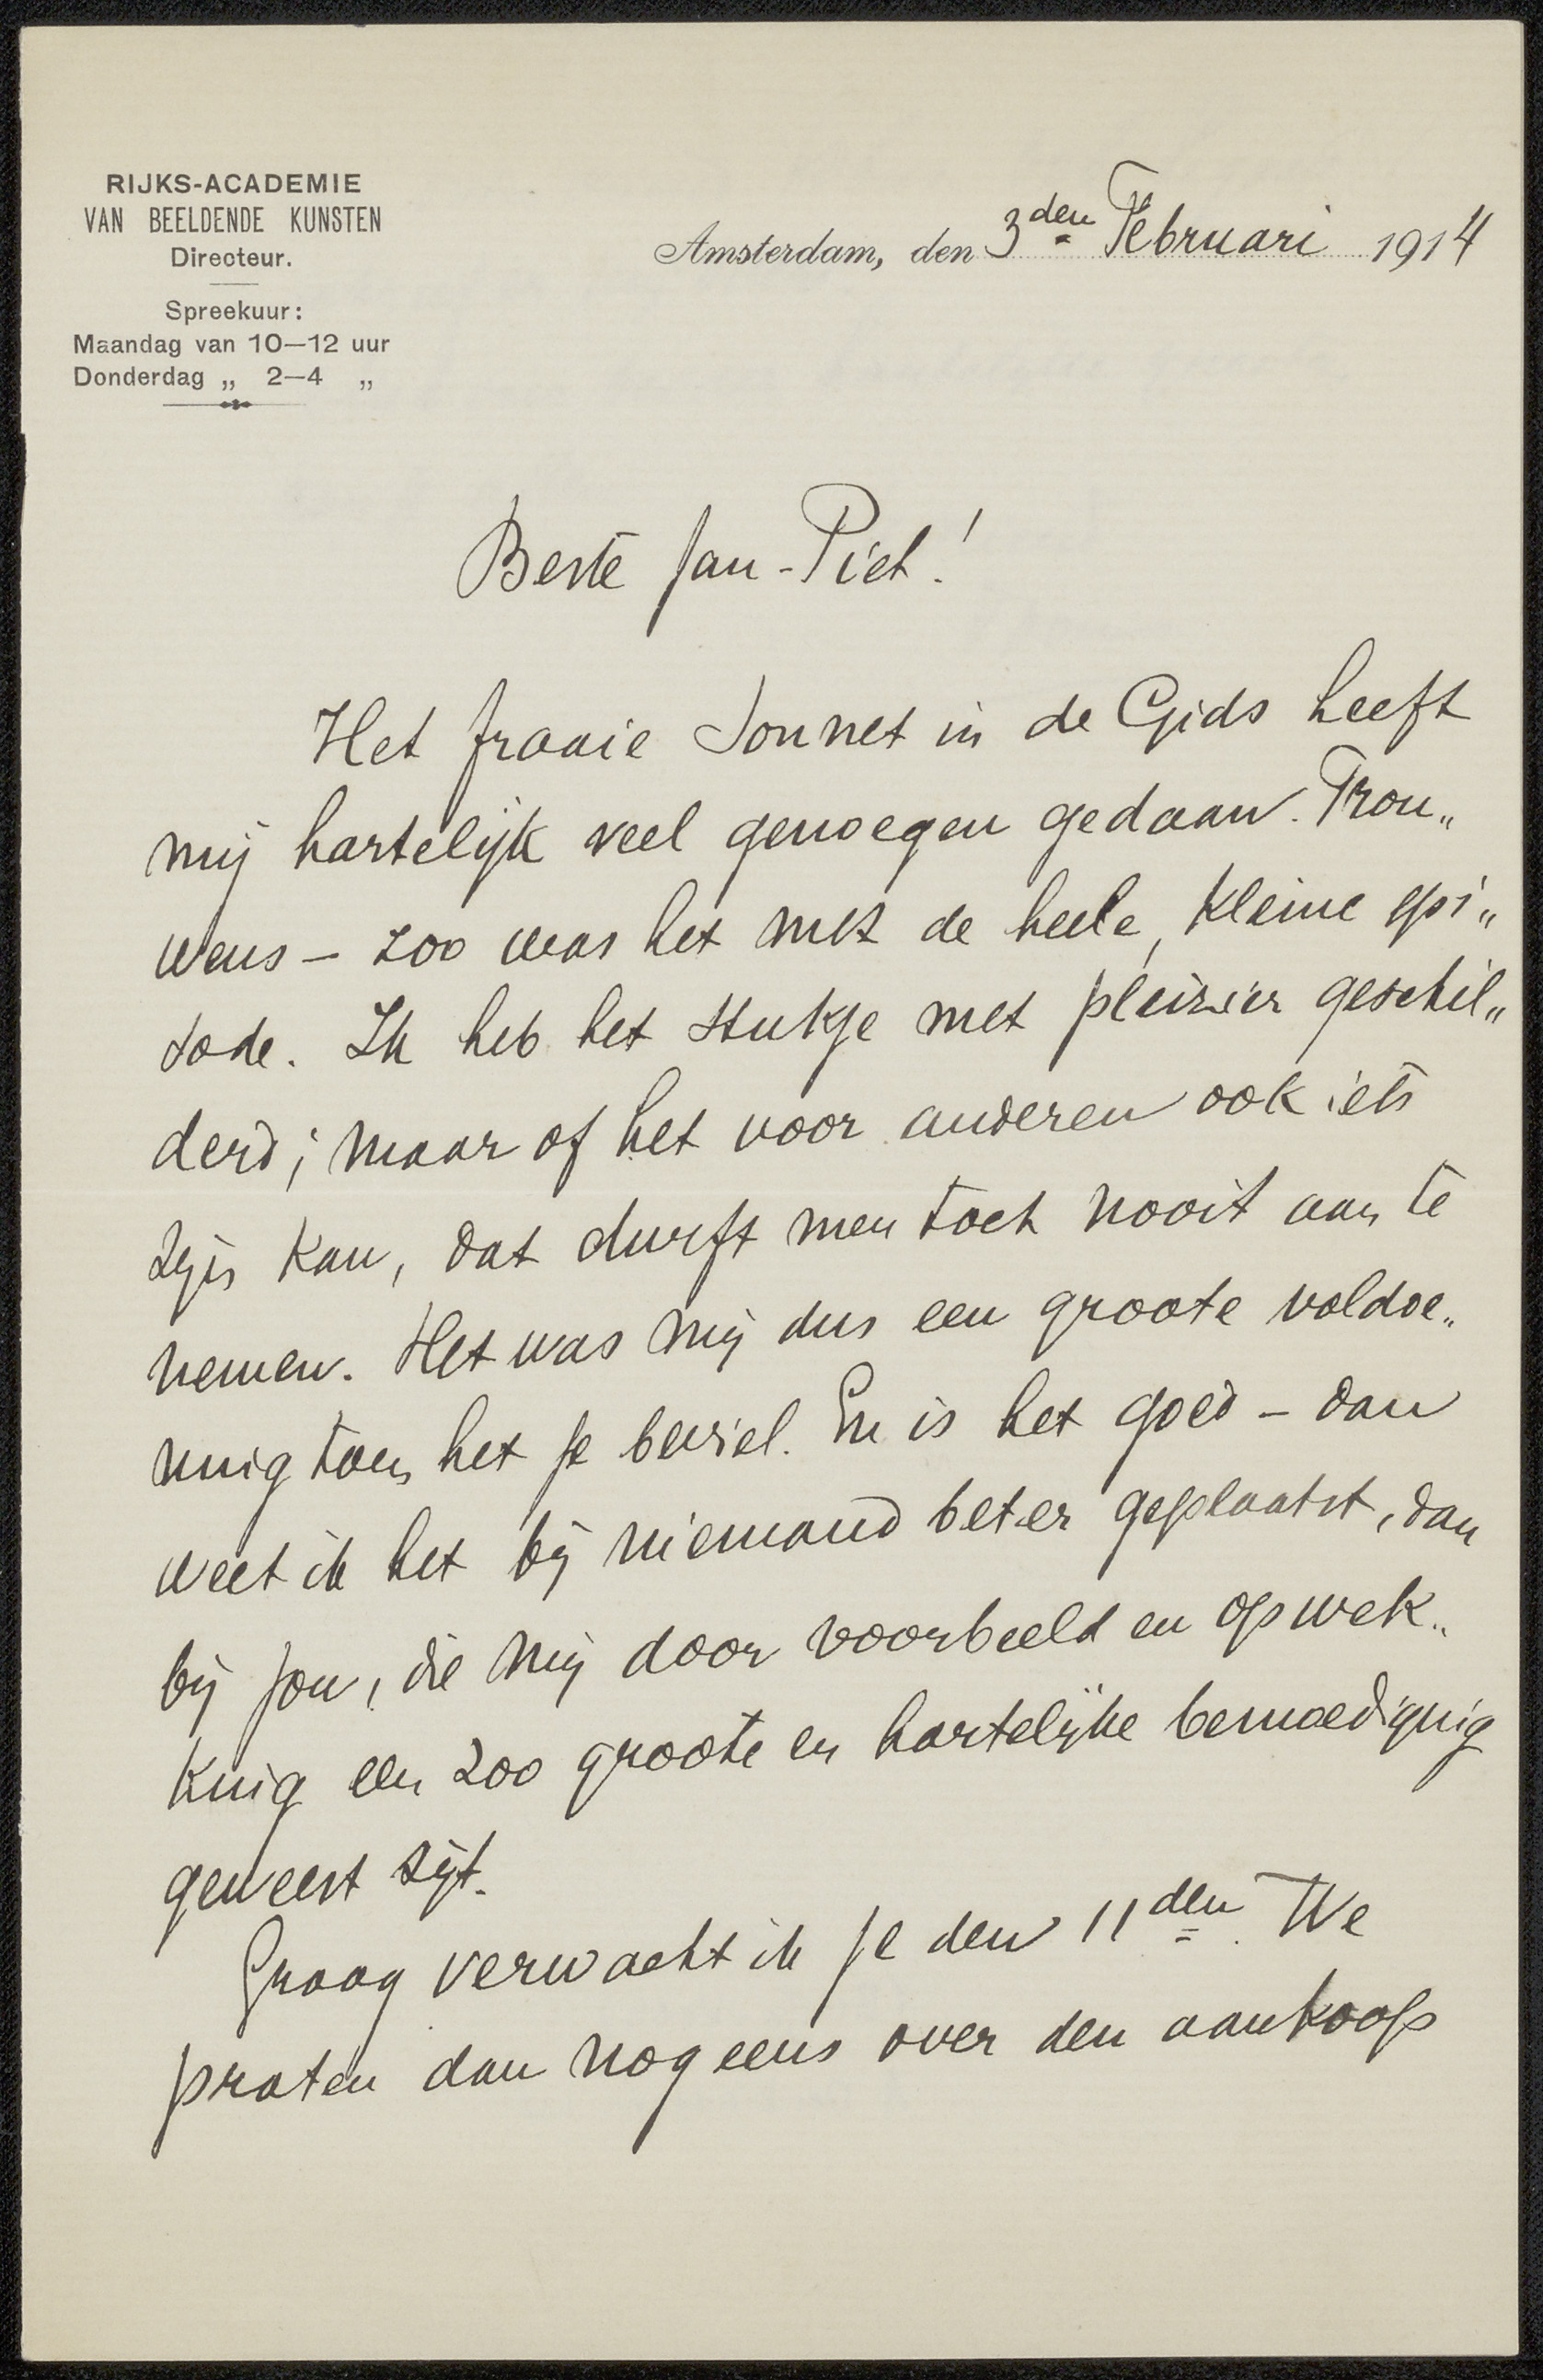 RIJKS-ACADEMIE
VAN BEELDENDE KUNSTEN
Directeur.
Spreekuur:
Maandag van 10—12 uur
Donderdag „ 2—4 „
Amsterdam, den 3den Februari 1914
Beste Jan-Piet!
Het fraaie Sonnet in de Gids heeft
mij hartelijk veel genoegen gedaan. Trou„
wens – zoo was het met de heele, kleine epi„
sode. Ik heb het stukje met pleizier geschil„
derd; maar of het voor anderen ook iets
zijn kan, dat durft men toch nooit aan te
nemen. Het was mij dus een groote voldoe„
ning toen het je beviel. En is het goed – dan
weet ik het bij niemand beter geplaatst, dan
bij jou, die mij door voorbeeld en opwek„
king een zoo groote en hartelijke bemoediging
geweest zijt.
Graag verwacht ik je den 11den. We
praten dan nog eens over den aankoop